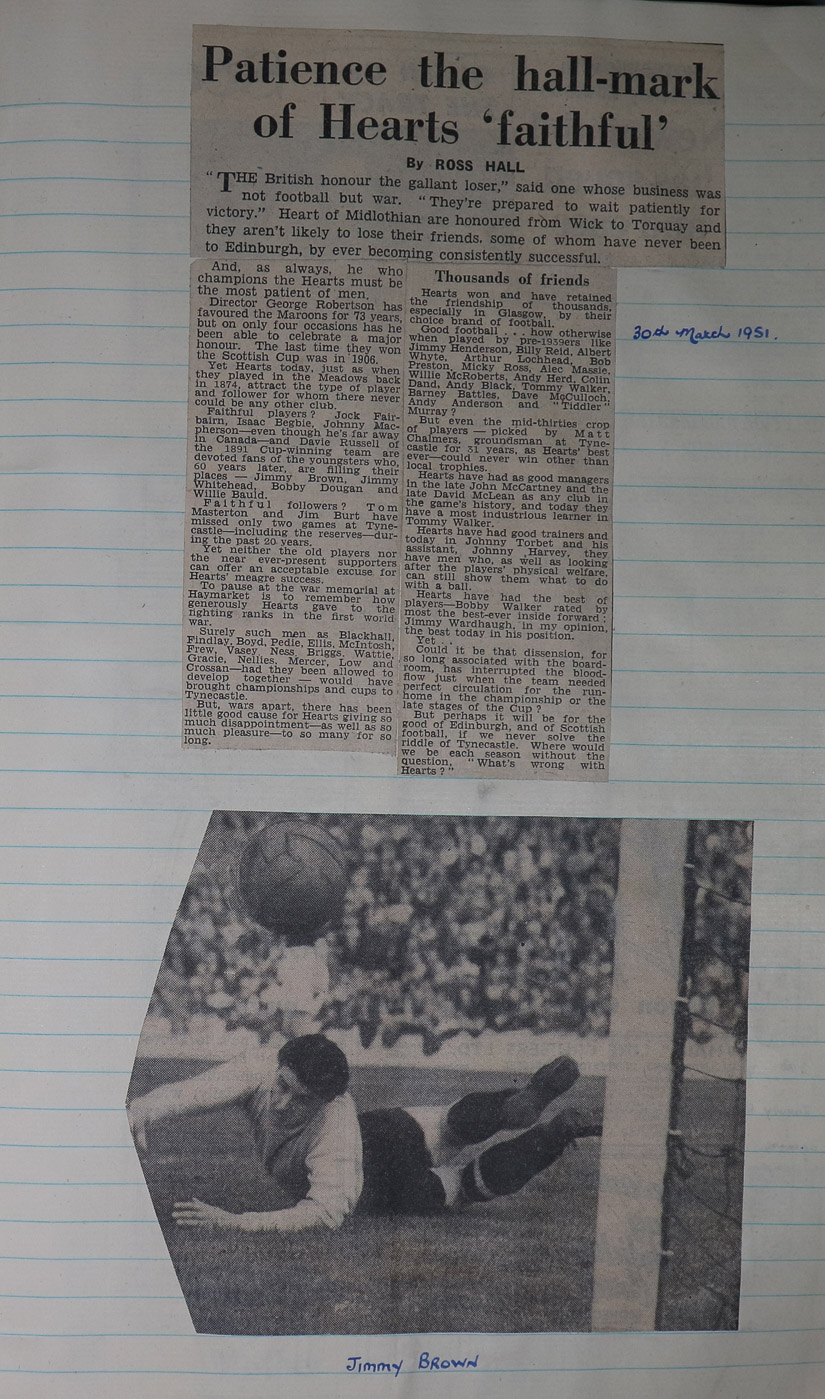 Patience the hall-mark
of Hearts ‘faithful’
By ROSS HALL
“THE British honour the gallant loser,” said one whose business was
not football but war. “They're prepared to wait patiently for
victory.” Heart of Midlothian are honoured from Wick to Torquay and
they aren't likely to lose their friends, some of whom have never been
to Edinburgh, by ever becoming consistently successful.
And, as always, he who
champions the Hearts must be
the most patient of men.
Director George Robertson has
favoured the Maroons for 73 years,
but on only four occasions has he
been able to celebrate a major
honour. The last time they won
the Scottish Cup was in 1906.
Yet Hearts today, just as when
they played in the Meadows back
in 1874, attract the type of player
and follower for whom there never
could be any other club.
Faithful players? Jock Fair-
bairn, Isaac Begbie, Johnny Mac-
pherson—even though he's far away
in Canada—and Davie Russell of
the 1891 Cup-winning team are
devoted fans of the youngsters who,
60 years later, are filling their
places — Jimmy Brown, Jimmy
Whitehead, Bobby Dougan and
Willie Bauld.
Faithful followers? Tom
Masterton and Jim Burt have
missed only two games at Tyne-
castle—including the reserves—dur-
ing the past 20 years.
Yet neither the old players nor
the near ever-present supporters
can offer an acceptable excuse for
Hearts' meagre success.
To pause at the war memorial at
Haymarket is to remember how
generously Hearts gave to the
fighting ranks in the first world
war.
Surely such men as Blackhall,
Findlay, Boyd, Pedie, Ellis, McIntosh,
Frew, Vasey, Ness, Briggs, Wattie,
Gracie, Nellies, Mercer, Low and
Crossan—had they been allowed to
develop together — would have
brought championships and cups to
Tynecastle.
But, wars apart, there has been
little good cause for Hearts giving so
much disappointment—as well as so
much pleasure—to so many for so
long.
Thousands of friends
Hearts won and have retained
the friendship of thousands,
especially in Glasgow, by their
choice brand of football.
Good football . . . how otherwise
when played by pre-1939ers like
Jimmy Henderson, Billy Reid, Albert
Whyte, Arthur Lochhead, Bob
Preston, Micky Ross, Alec Massie,
Willie McRoberts, Andy Herd, Colin
Dand, Andy Black, Tommy Walker,
Barney Battles, Dave McCulloch,
Andy Anderson and “Tiddler”
Murray?
But even the mid-thirties crop
of players — picked by Matt
Chalmers, groundsman at Tyne-
castle for 31 years, as Hearts' best
ever—could never win other than
local trophies.
Hearts have had as good managers
in the late John McCartney and the
late David McLean as any club in
the game's history, and today they
have a most industrious learner in
Tommy Walker.
Hearts have had good trainers and
today in Johnny Torbet and his
assistant, Johnny Harvey, they
have men who, as well as looking
after the players' physical welfare,
can still show them what to do
with a ball.
Hearts have had the best of
players—Bobby Walker rated by
most the best-ever inside forward;
Jimmy Wardhaugh, in my opinion,
the best today in his position.
Yet . . .
Could it be that dissension, for
so long associated with the board-
room, has interrupted the blood-
flow just when the team needed
perfect circulation for the run-
home in the championship or the
late stages of the Cup?
But perhaps it will be for the
good of Edinburgh, and of Scottish
football, if we never solve the
riddle of Tynecastle. Where would
we be each season without the
question, “What's wrong with
Hearts?”
30th March 1951.
Jimmy BROWN